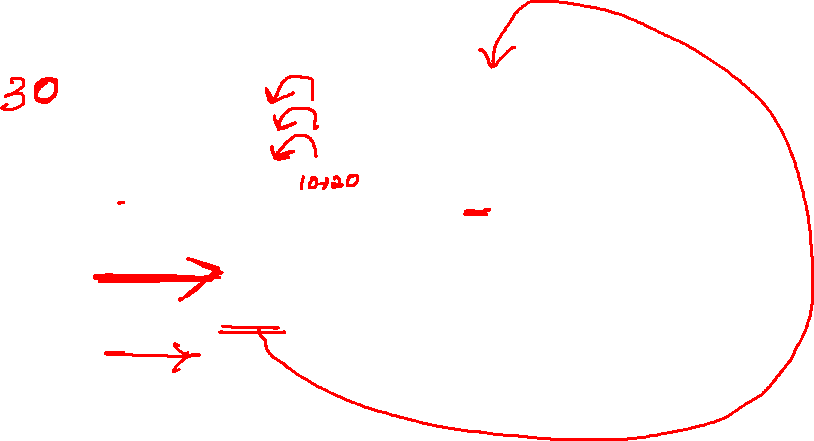 30
10+20